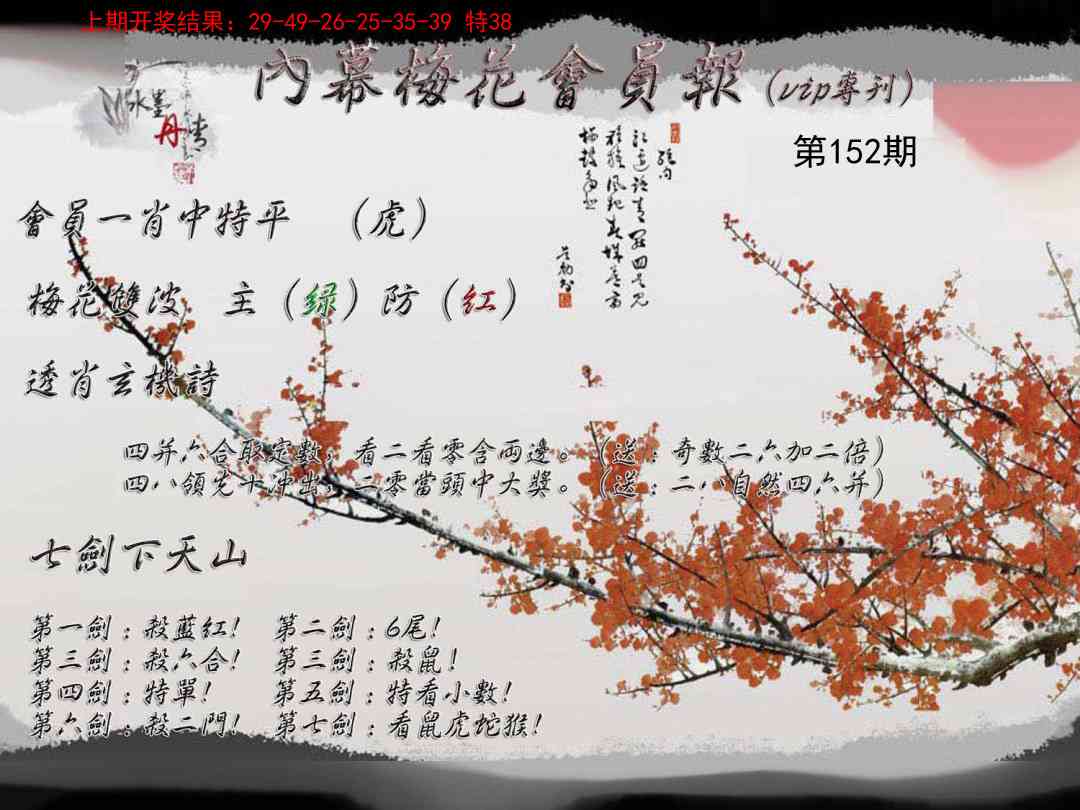 上期开奖结果：29-49-26-25-35-39 特38
內幕梅花會員報（vip專刊）
水墨
丹青
第152期
會員一肖中特平 （虎）
梅花雙波 主（绿）防（红）
透肖玄機詩
四并六合取定數，看二看零含兩邊。（送：奇數二六加二倍）
四八領先十沖出，二零當頭中大獎。（送：二八自然四六并）
七劍下天山
第一劍：殺藍紅！ 第二劍：6尾！
第三劍：殺六合！ 第三劍：殺鼠！
第四劍：特單！ 第五劍：特看小數！
第六劍：殺二門！ 第七劍：看鼠虎蛇猴！